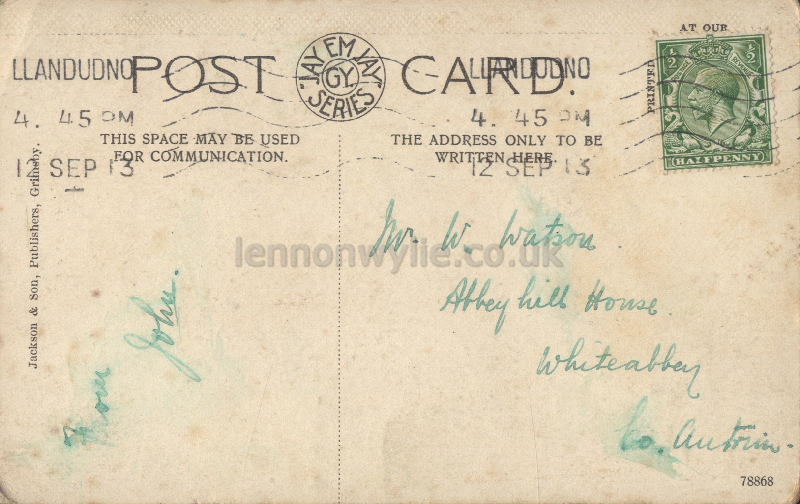 AT OUR
PRINTED
LLANDUDNO
4. 45 PM
12 SEP 13
POST CARD.
"JAY EM JAY"
GY.
SERIES
LLANDUDNO
4. 45 PM
12 SEP 13
½ ½
HALFPENNY
THIS SPACE MAY BE USED
FOR COMMUNICATION.
THE ADDRESS ONLY TO BE
WRITTEN HERE.
Jackson & Son, Publishers, Grimsby.
From John.
Mr. W. Watson
Abbeyhill House.
Whiteabbey
Co. Antrim.
lennonwylie.co.uk
78868